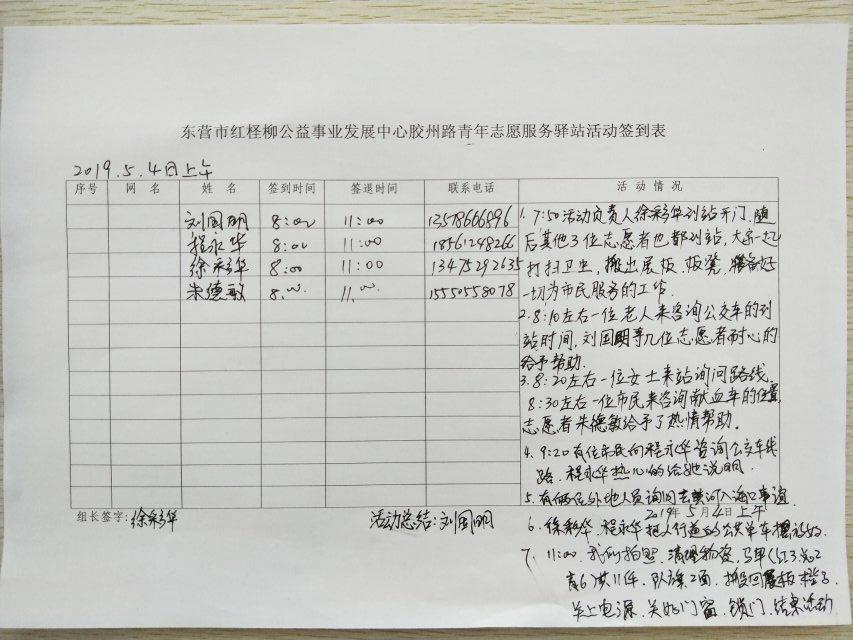 东营市红柽柳公益事业发展中心胶州路青年志愿服务驿站活动签到表
2019.5.4日上午
序号 网名 姓名 签到时间 签退时间 联系电话 活动情况
刘国明 8:00 11:00 13578666896
程永华 8:00 11:00 18561248266
徐彩华 8:00 11:00 13475292635
朱德敏 8.00 11.00 15550558078
1. 7:50活动负责人徐彩华到站开门，随
后其他3位志愿者也都到站，大家一起
打扫卫生，搬出展板、板凳，准备好
一切为市民服务的工作.
2. 8:10左右一位老人来咨询公交车的到
站时间，刘国明等几位志愿者耐心的
给予帮助.
3. 8:20左右一位女士来站询问路线,
8:30左右一位市民来咨询献血车的位置,
志愿者朱德敏给予了热情帮助。
4. 9:20有位市民向程永华咨询公交车线
路. 程永华热心的给她说明.
5. 有俩位外地人员询问去黄河入海口事谊
组长签字: 徐彩华 活动总结: 刘国明 2019年5月4日上午
6. 徐彩华、程永华把人行道的公共单车摆放好.
7. 11:00. 我们拍照. 清理物资, 马甲(红3
6 共11件. 队旗2面. 搬回展板
关上电源. 关好门窗. 锁门. 结束活动